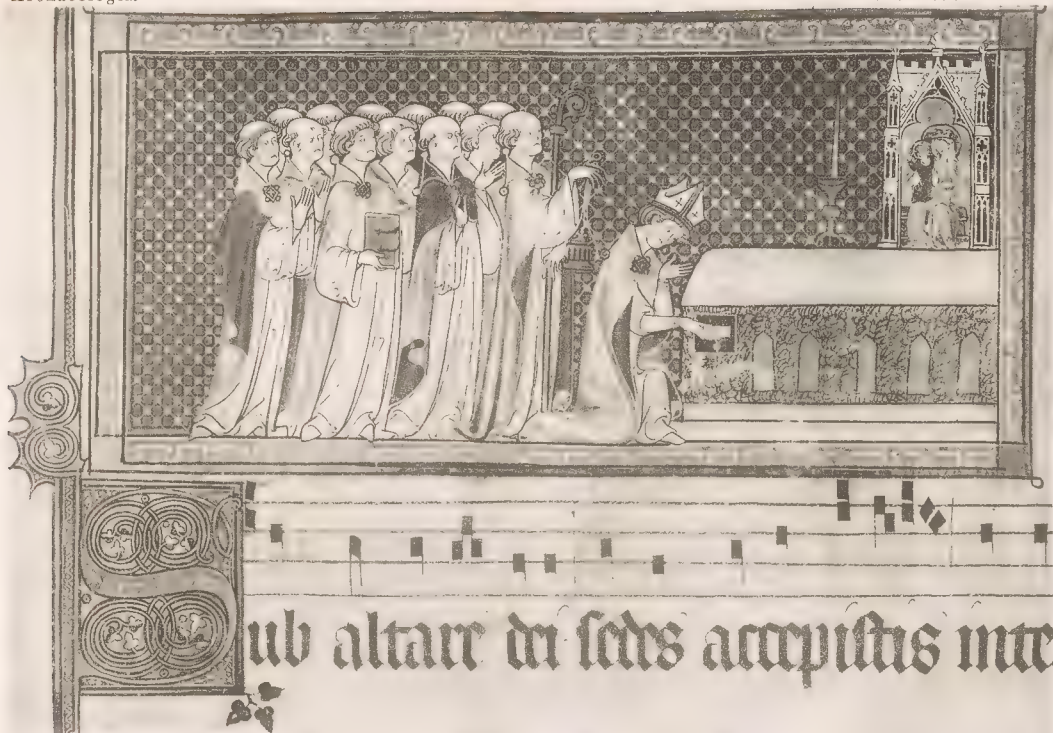 Sub altare dei sedes accepistis inte